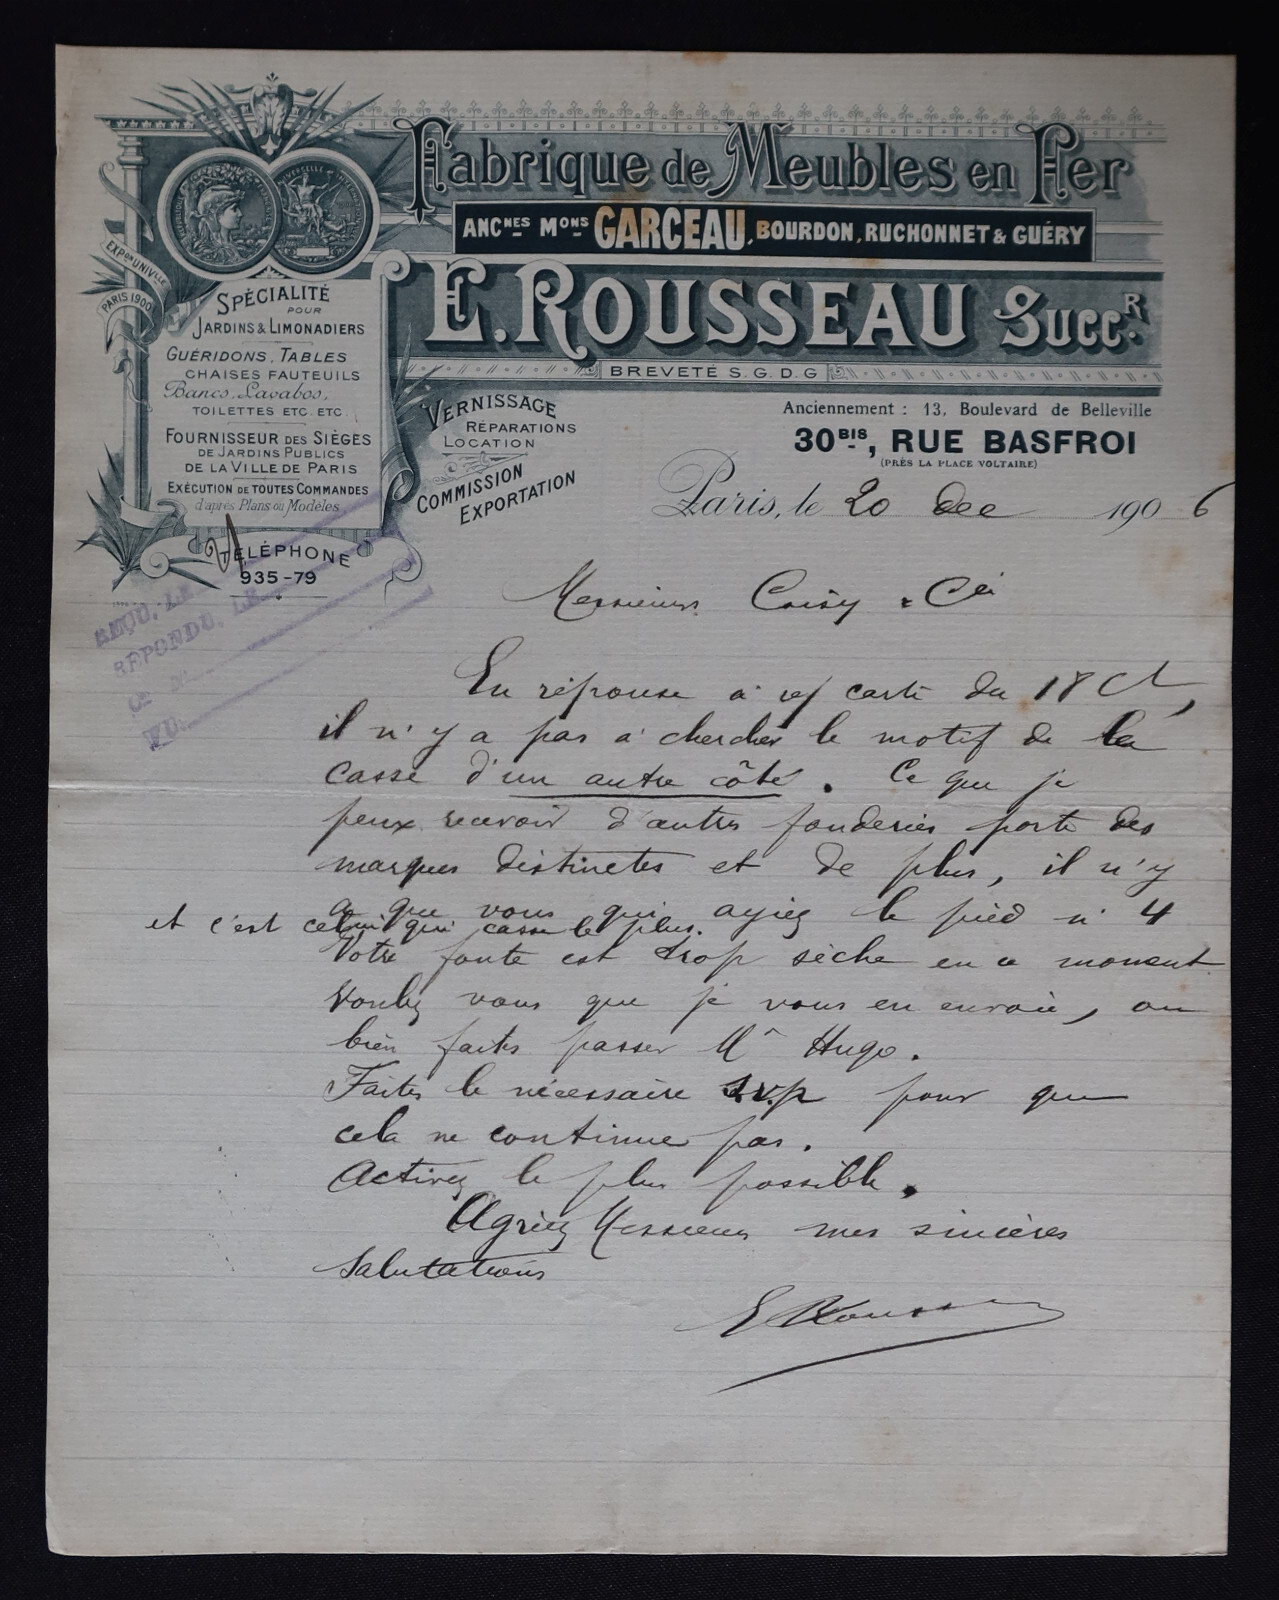 Fabrique de Meubles en Fer
ANC<sup>NES</sup> M<sup>ONS</sup> GARCEAU, BOURDON, RUCHONNET & GUÉRY
E. ROUSSEAU SUCC<sup>R</sup>.
BREVETÉ S.G.D.G
EXP<sup>ON</sup> UNIV<sup>LLE</sup>
PARIS 1900
SPÉCIALITÉ
POUR
JARDINS & LIMONADIERS
GUÉRIDONS, TABLES
CHAISES FAUTEUILS
Bancs, Lavabos,
TOILETTES ETC. ETC.
FOURNISSEUR DES SIÈGES
DE JARDINS PUBLICS
DE LA VILLE DE PARIS
EXÉCUTION DE TOUTES COMMANDES
d'après Plans ou Modèles
TÉLÉPHONE
935-79
VERNISSAGE
RÉPARATIONS
LOCATION
COMMISSION
EXPORTATION
Anciennement : 13, Boulevard de Belleville
30<sup>BIS</sup>, RUE BASFROI
(PRÈS LA PLACE VOLTAIRE)
Paris, le 20 Dec 1906
REÇU, LE
REPONDU, LE
VU
Messieurs & Cie
En réponse à carte du 18 Ct,
il n'y a pas à chercher le motif de la
casse d'un autre côté. Ce que je
peux recevoir d'autres fonderies porte des
marques distinctes et de plus, il n'y
a que vous qui ayiez le pied n° 4
et c'est celui qui casse le plus.
Votre fonte est trop sèche en ce moment
Voulez vous que je vous en envoie, ou
bien faites passer Mr Hugo.
Faites le nécessaire svp pour que
cela ne continue pas.
Activez le plus possible.
Agréez Messieurs mes sincères
Salutations
E Rousseau